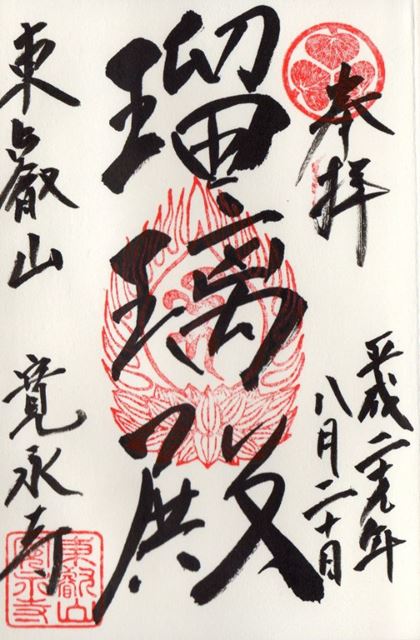 奉拝
平成二十九年
八月二十日
瑠璃殿
東叡山 寛永寺
東叡山
寛永寺